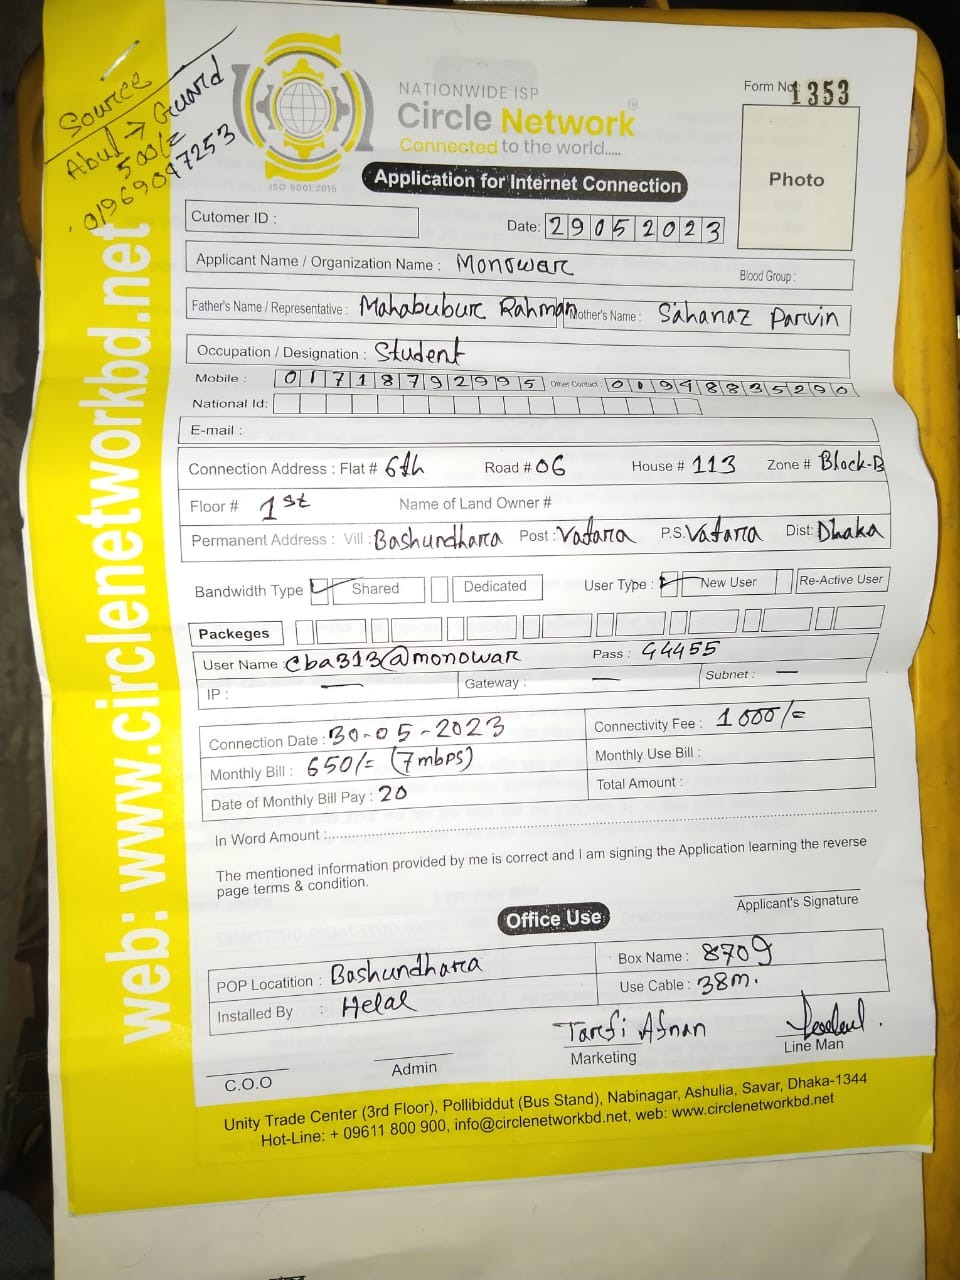 Source
Abul → Guard
500/=
01969097253
web: www.circlenetworkbd.net
ISO 9001:2015
NATIONWIDE ISP
Circle Network
Connected to the world.....
Application for Internet Connection
Form No: 1353
Photo
Cutomer ID :
Date: 29052023
Applicant Name / Organization Name : Monowar
Blood Group :
Father's Name / Representative : Mahabubur Rahman Mother's Name : Sahanaz Parvin
Occupation / Designation : Student
Mobile : 01718792995 Other Contact : 01948835290
National Id:
E-mail :
Connection Address : Flat # 6th Road # 06 House # 113 Zone # Block-B
Floor # 1st Name of Land Owner #
Permanent Address : Vill : Bashundhara Post : Vatara P.S. Vatara Dist: Dhaka
Bandwidth Type Shared Dedicated User Type : New User Re-Active User
Packeges
User Name : Cba313@monowar Pass : 94455
IP : — Gateway : — Subnet : —
Connection Date : 30-05-2023 Connectivity Fee : 1000/=
Monthly Bill : 650/= (7mbps) Monthly Use Bill :
Date of Monthly Bill Pay : 20 Total Amount :
In Word Amount :
The mentioned information provided by me is correct and I am signing the Application learning the reverse
page terms & condition.
Applicant's Signature
Office Use
POP Locatition : Bashundhara Box Name : 8709
Installed By : Helal Use Cable : 38m.
Tarfi Afnan
C.O.O Admin Marketing Line Man
Unity Trade Center (3rd Floor), Pollibiddut (Bus Stand), Nabinagar, Ashulia, Savar, Dhaka-1344
Hot-Line: + 09611 800 900, info@circlenetworkbd.net, web: www.circlenetworkbd.net